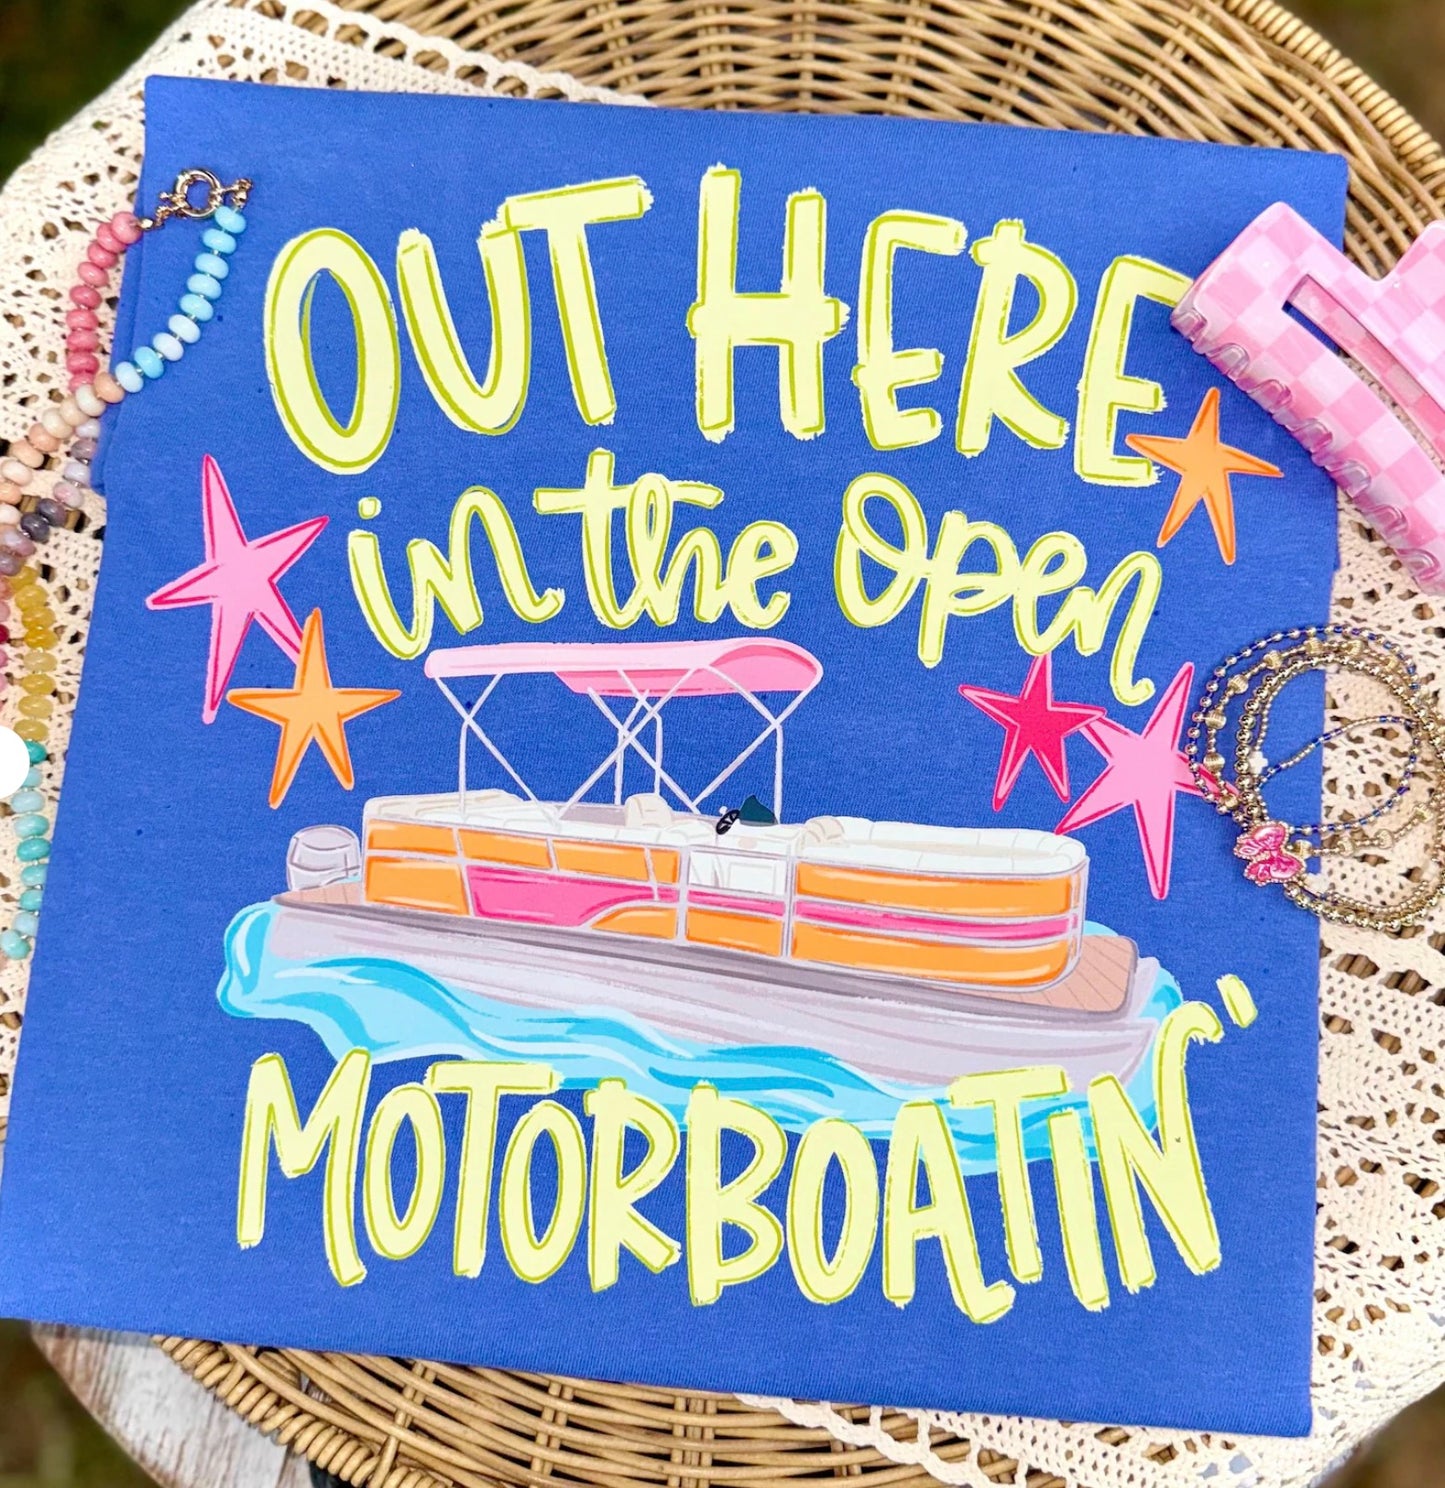 OUT HERE
in the open
MOTORBOATIN'